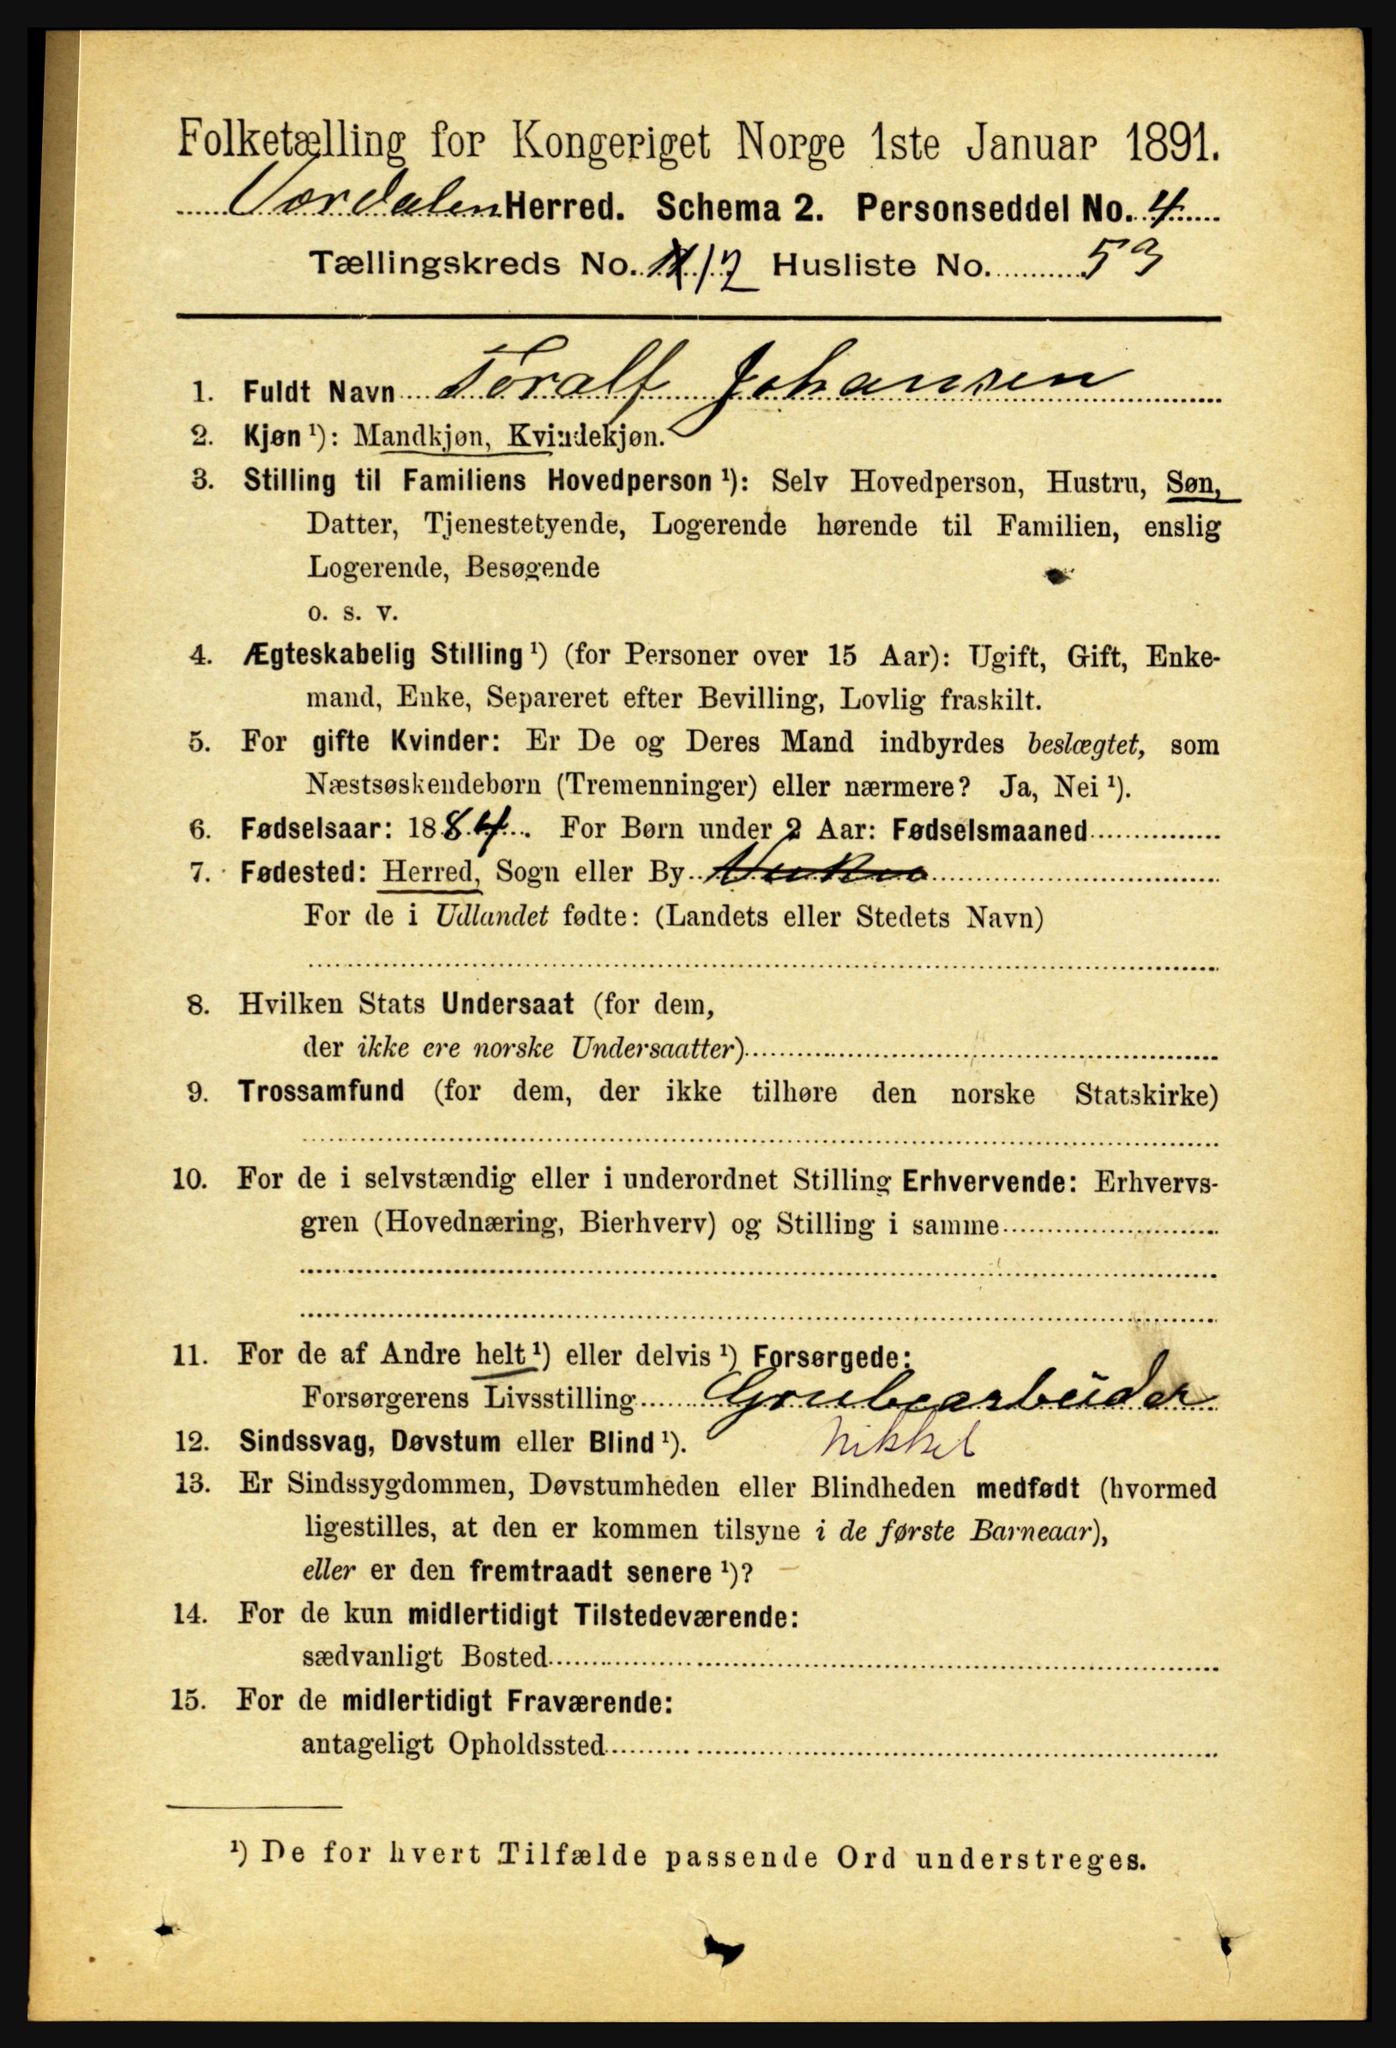 Folketælling for Kongeriget Norge 1ste Januar 1891.
Værdalen Herred. Schema 2. Personseddel No. 4
Tællingskreds No. 12 Husliste No. 53
1. Fuldt Navn Toralf Johansen
2. Kjøn ¹): Mandkjøn, Kvindekjøn.
3. Stilling til Familiens Hovedperson ¹): Selv Hovedperson, Hustru, Søn,
Datter, Tjenestetyende, Logerende hørende til Familien, enslig
Logerende, Besøgende
o. s. v.
4. Ægteskabelig Stilling ¹) (for Personer over 15 Aar): Ugift, Gift, Enke-
mand, Enke, Separeret efter Bevilling, Lovlig fraskilt.
5. For gifte Kvinder: Er De og Deres Mand indbyrdes beslægtet, som
Næstsøskendebørn (Tremenninger) eller nærmere? Ja, Nei ¹).
6. Fødselsaar: 1884. For Børn under 2 Aar: Fødselsmaaned
7. Fødested: Herred, Sogn eller By
For de i Udlandet fødte: (Landets eller Stedets Navn)
8. Hvilken Stats Undersaat (for dem,
der ikke ere norske Undersaatter)
9. Trossamfund (for dem, der ikke tilhøre den norske Statskirke)
10. For de i selvstændig eller i underordnet Stilling Erhvervende: Erhvervs-
gren (Hovednæring, Bierhverv) og Stilling i samme
11. For de af Andre helt ¹) eller delvis ¹) Forsørgede:
Forsørgerens Livsstilling Grubearbeider
12. Sindssvag, Døvstum eller Blind ¹). Nikkel
13. Er Sindssygdommen, Døvstumheden eller Blindheden medfødt (hvormed
ligestilles, at den er kommen tilsyne i de første Barneaar),
eller er den fremtraadt senere ¹)?
14. For de kun midlertidigt Tilstedeværende:
sædvanligt Bosted
15. For de midlertidigt Fraværende:
antageligt Opholdssted
¹) De for hvert Tilfælde passende Ord understreges.